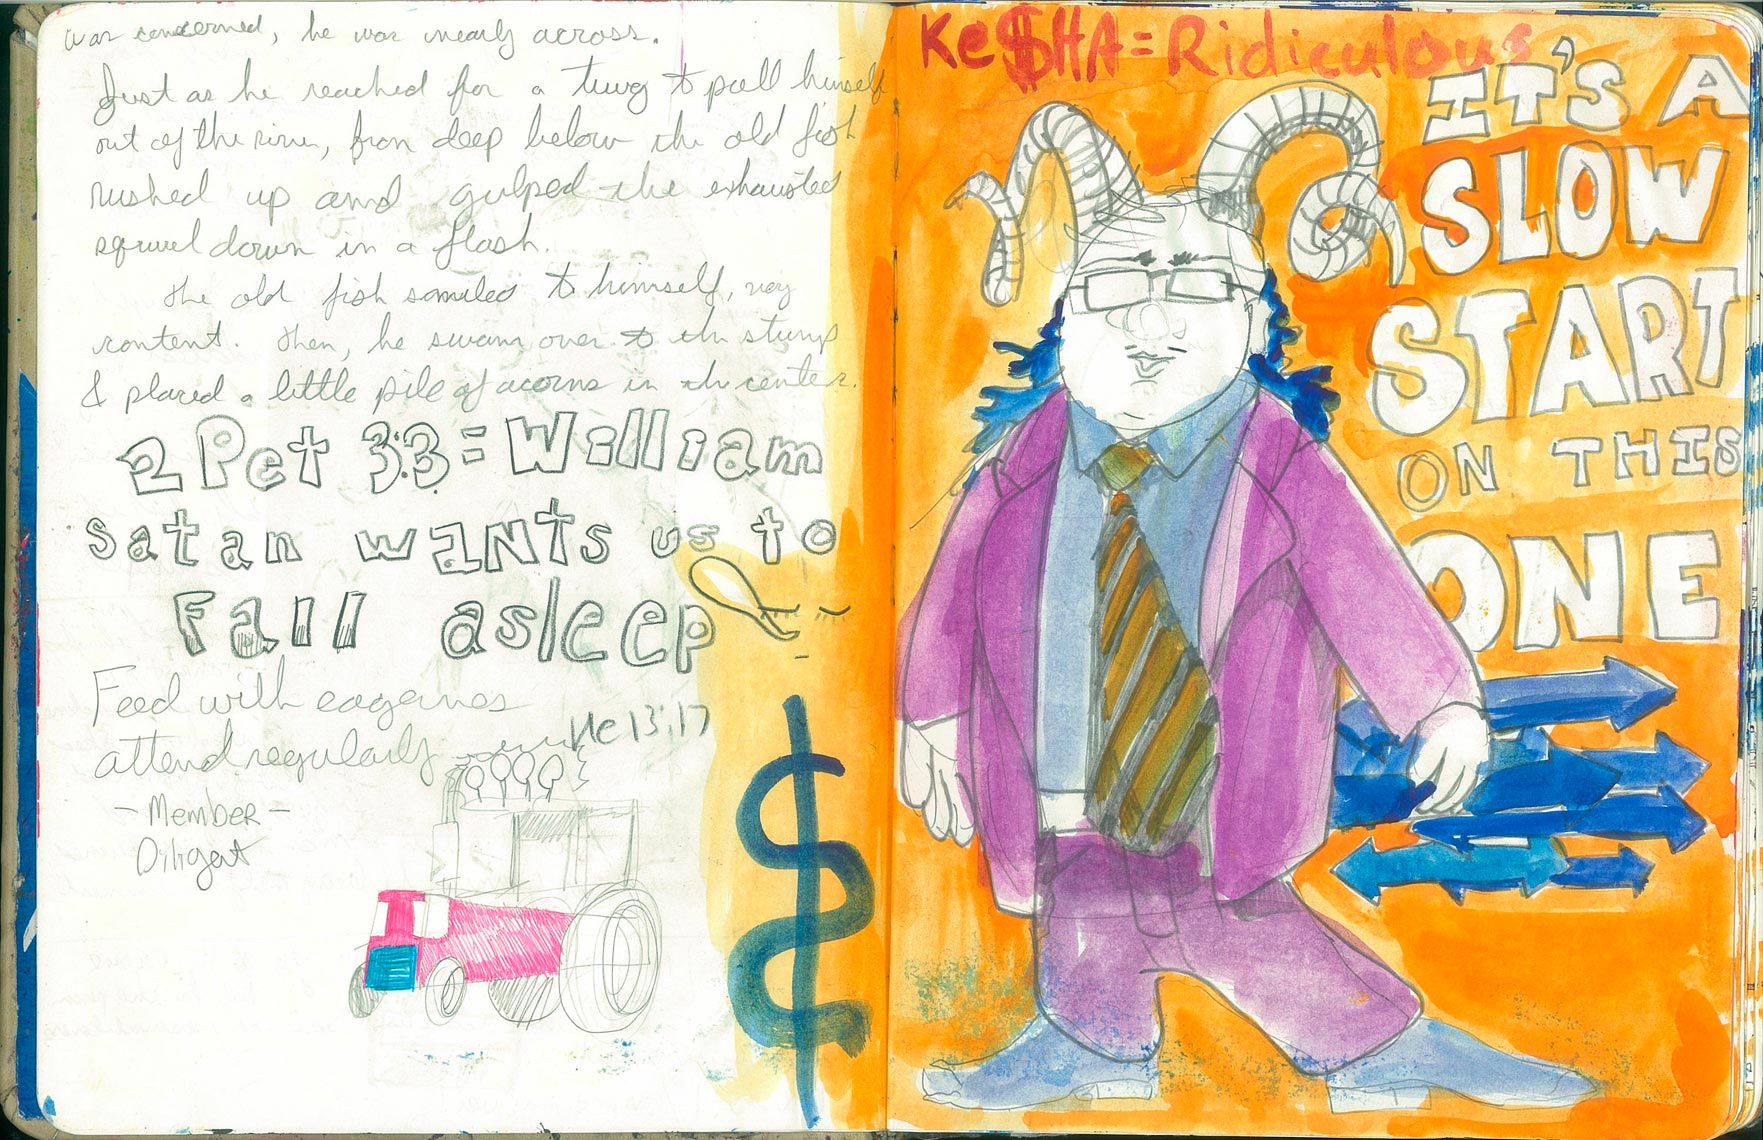 was concerned, he was nearly across.
Just as he reached for a twig to pull himself
out of the river, from deep below the old fish
rushed up and gulped the exhausted
squirrel down in a flash.
The old fish samiled to himself, very
content. Then, he swam over to the stump
& placed a little pile of acorns in the center.
2 Pet 3:3 = William
satan wants us to
Fall asleep
Feed with eagernes
attend regularly
He 13:17
- Member -
Diligent
$
Ke$HA = Ridiculous
IT'S A
SLOW
START
ON THIS
ONE